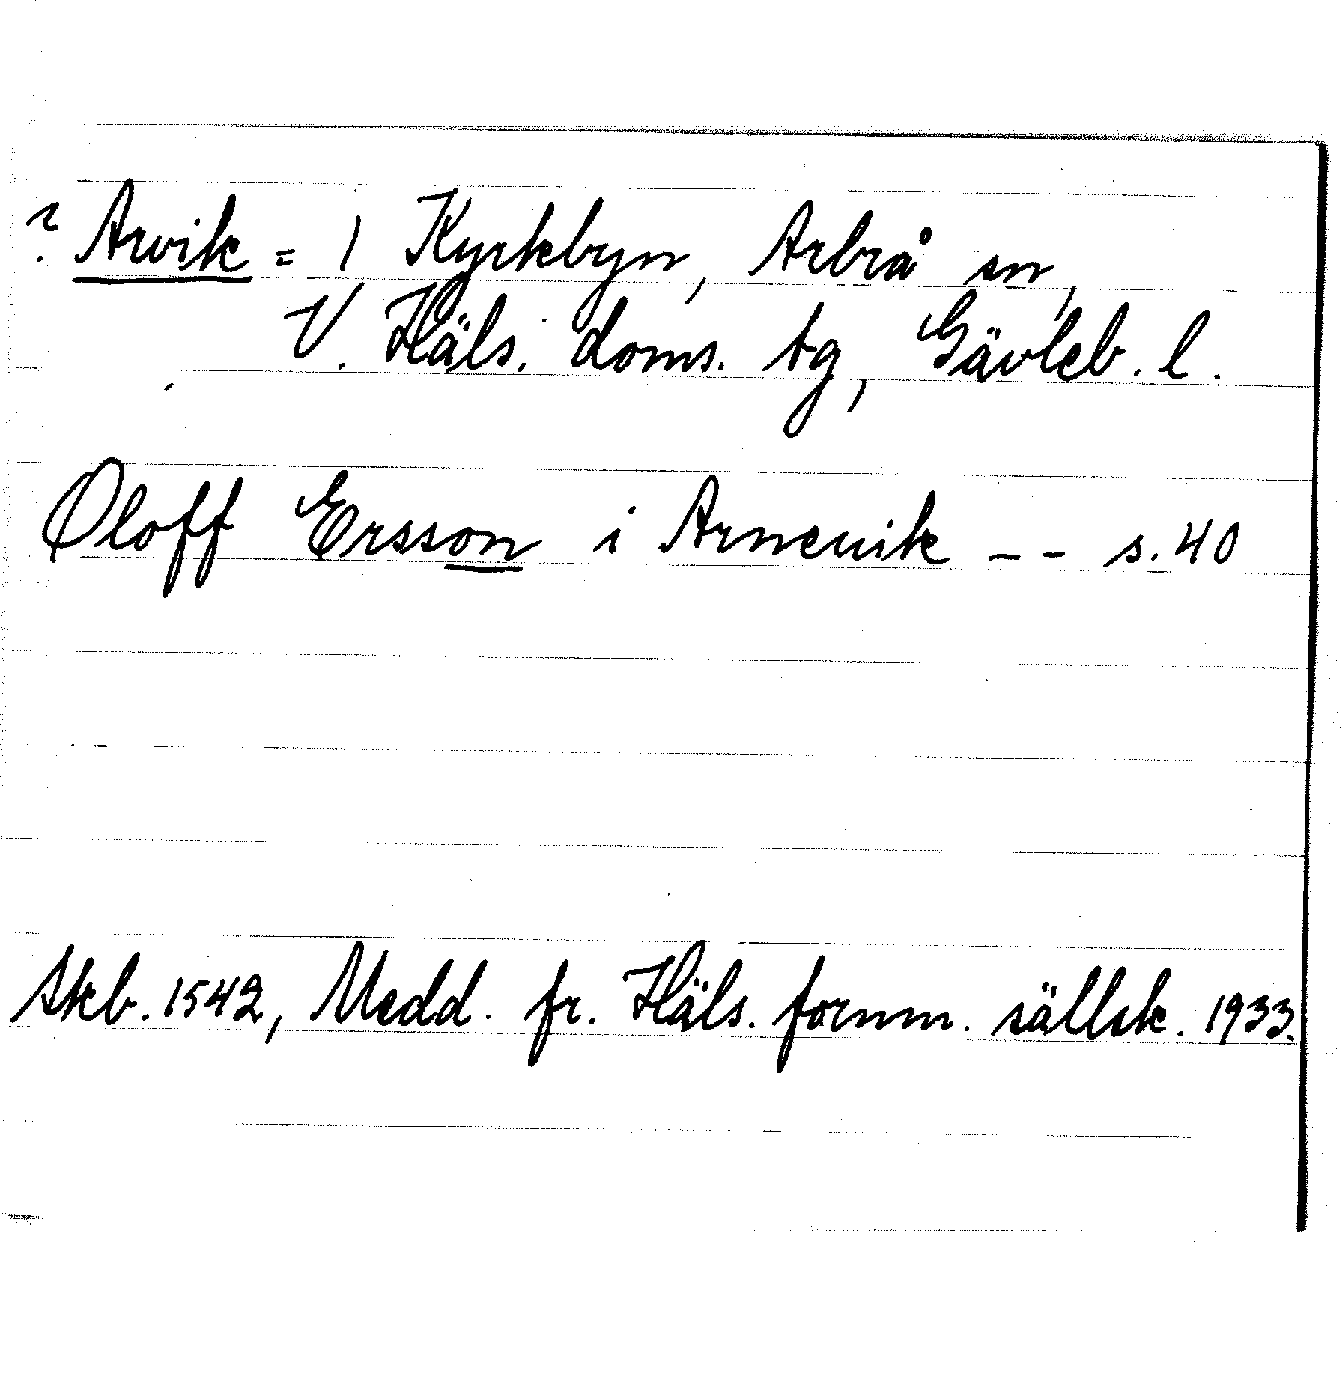 ? Arvik = 1 Kyrkbyn, Arbrå sn,
V. Häls. doms. tg, Gävleb. l.
Oloff Ersson i Arneuik -- s. 40
Skb. 1542, Medd. fr. Häls. fornm. sällsk. 1933.